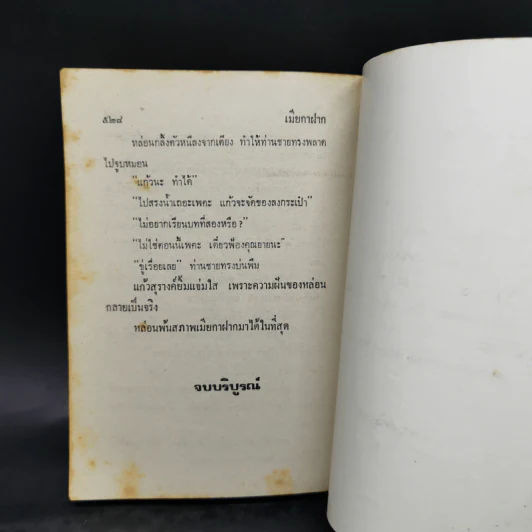 ๕๒๘ เมียกาฝาก
หล่อนกลิ้งตัวหนีลงจากเตียง ทำให้ท่านชายทรงพลาด
ไปจูบหมอน
"แก้วนะ ทำได้"
"ไปสรงน้ำเถอะเพคะ แก้วจะจัดของลงกระเป๋า"
"ไม่อยากเรียนบทที่สองหรือ?"
"ไม่ใช่ตอนนี้เพคะ เดี๋ยวฟ้องคุณยายนะ"
"ขู่เรื่อยเลย" ท่านชายทรงบ่นพึม
แก้วสุรางค์ยิ้มแจ่มใส เพราะความฝันของหล่อน
กลายเป็นจริง
หล่อนพ้นสภาพเมียกาฝากมาได้ในที่สุด
จบบริบูรณ์